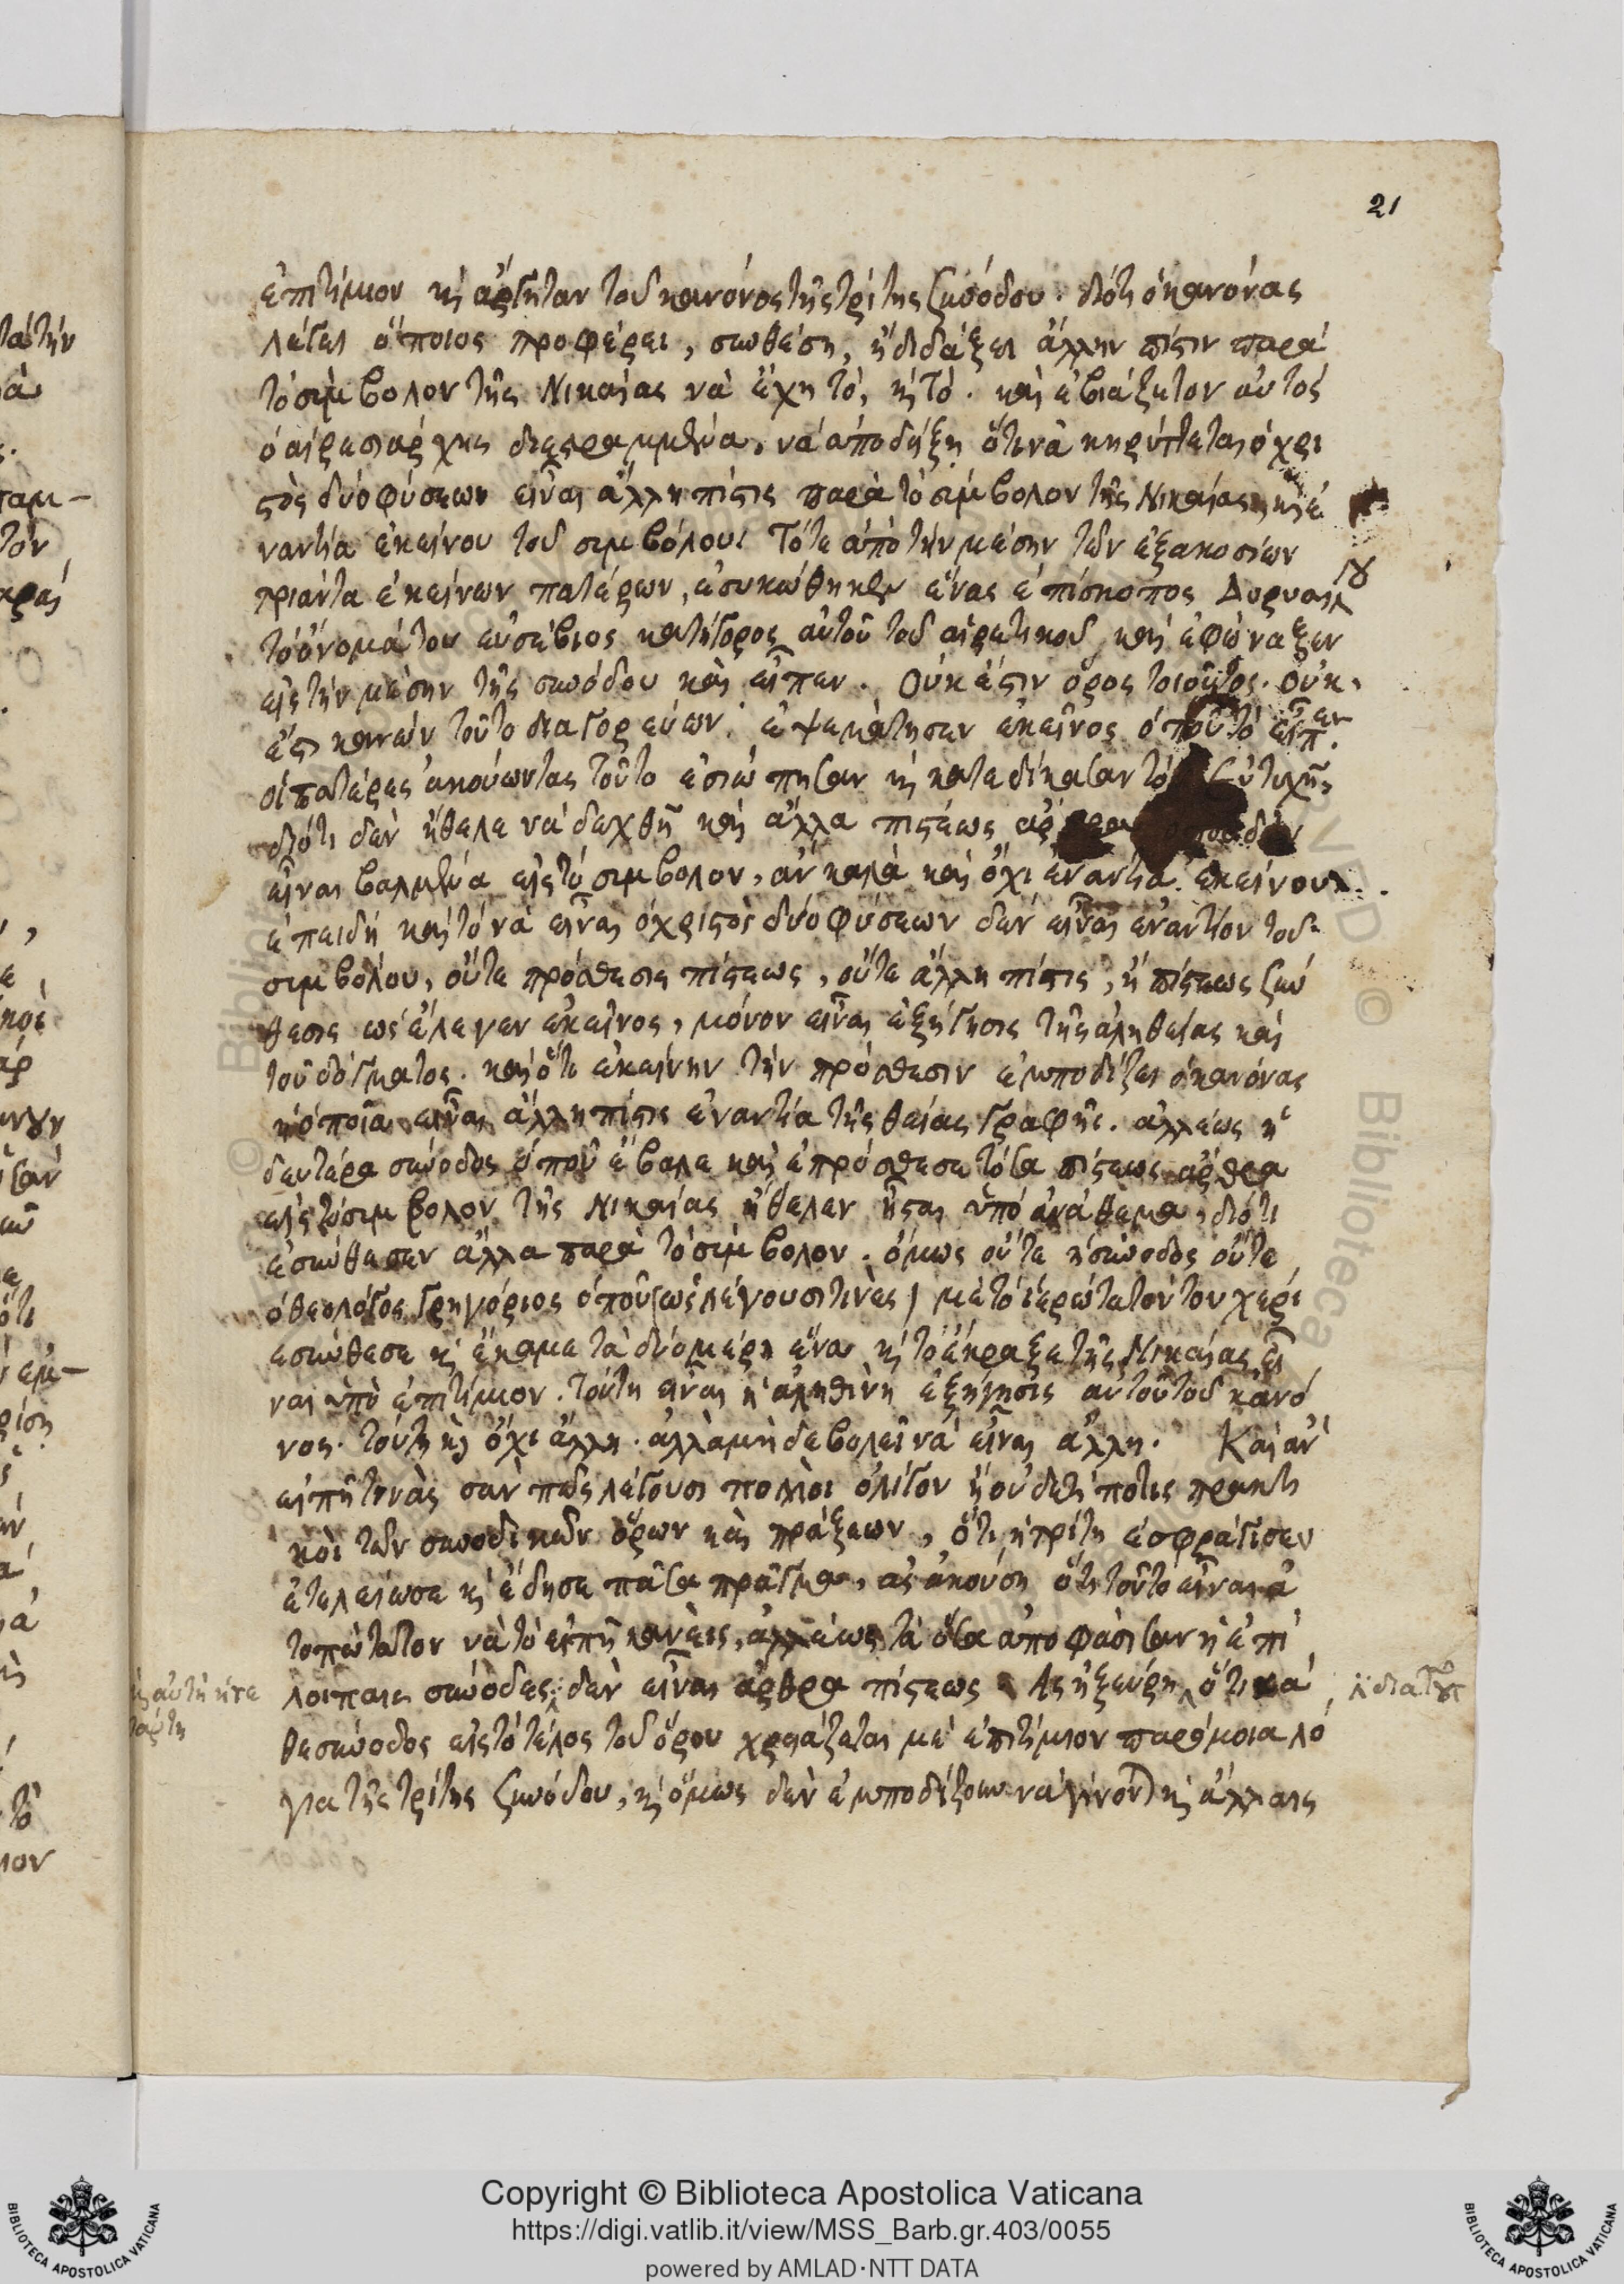 21
ἐπιτίμιον κὶ ἄρτηταν τοῦ κανόνος τῆς τρίτης συνόδου. διότι ὁ κανόνας
λέγει ὅποιος προφέρει, συνθέση, ἢ διδάξει ἄλλην πίστιν παρὰ
τὸ σύμβολον τῆς Νικαίας νὰ ἔχη τὸ, κὶ τό. καὶ ἐβιάζετον αὐτὸς
ὁ αἱρεσιάρχης νὰ ἀποδείξη ὅτι νὰ κηρύττεται ὁ χρι
στὸς δύο φύσεων εἶναι ἄλλη πίστις παρὰ τὸ σύμβολον τῆς Νικαίας, κὶ ἐ
ναντία ἐκείνου τοῦ συμβόλου. Τότε ἀπὸ τὴν μέσην τῶν ἑξακοσίων
τριάντα ἐκείνων πατέρων, ἐσυκώθηκεν ἕνας ἐπίσκοπος
τὸ ὄνομά του εὐσέβιος κατήγορος αὐτοῦ τοῦ αἱρετικοῦ, καὶ ἐφώναξεν
εἰς τὴν μέσην τῆς συνόδου καὶ εἶπεν. Οὐκ ἔστιν ὅρος τοιοῦτος. Οὐκ
ἔστι κανὼν τοῦτο διαγορεύων. ἐψεμάτησεν ἐκεῖνος ὁποῦ τὸ εἶπεν.
οἱ πατέρες ἀκούωντας τοῦτο ἐσιώπησαν κὶ κατεδίκασαν τὸν Εὐτυχῆ,
διότι δὲν ἤθελε νὰ δεχθῆ καὶ ἄλλα πίστεως ἄρθρα ὁποῦ δὲν
εἶναι βαλμένα εἰς τὸ σύμβολον, ἂν καλὰ καὶ ὄχι ἐναντία ἐκείνου.
ἐπειδὴ καὶ τὸ νὰ εἶναι ὁ χριστὸς δύο φύσεων δὲν εἶναι ἐναντίον τοῦ
συμβόλου, οὔτε πρόσθεσις πίστεως, οὔτε ἄλλη πίστις, ἢ πίστεως συν
θεσις ὡς ἔλεγεν ἐκεῖνος, μόνον εἶναι ἐξήγησις τῆς ἀληθείας καὶ
τοῦ δόγματος. καὶ ὅτι ἐκείνην τὴν πρόσθεσιν ἐμποδίζει ὁ κανόνας
ἡ ὁποῖα εἶναι ἄλλη πίστις ἐναντία τῆς θείας γραφῆς. ἀλλέως ἡ
δευτέρα σύνοδος ὁποῦ ἔβαλε καὶ ἐπρόσθεσε τόσα πίστεως ἄρθρα
εἰς τὸ σύμβολον τῆς Νικαίας ἤθελεν ἦσται ὑπὸ ἀνάθεμα, διότι
ἐσύνθεσεν ἄλλα παρὰ τὸ σύμβολον. ὅμως οὔτε ἡ σύνοδος οὔτε
ὁ θεολόγος Γρηγόριος ὁποῦ (ὡς λέγουσι τινὲς) μὲ τὸ ἱερώτατόν του χέρι
ἐσύνθεσε κὶ ἔκαμε τὰ δύο μέρη ἕνα κὶ τὸ ἔκραξε τῆς Νικαίας εἶ
ναι ὑπὸ ἐπιτίμιον. Τούτη εἶναι ἡ ἀληθινὴ ἐξήγησις αὐτοῦ τοῦ κανό
νος. τούτη κὶ ὄχι ἄλλη. ἀλλὰ μηδὲ βολεῖ νὰ εἶναι ἄλλη. Καὶ ἂν
εἰπῆ τινὰς σὰν πῶς λέγουσι πολλοὶ ὀλίγον ἢ οὐδεπόποτις πρακτι
κοὶ τῶν συνοδικῶν ὅρων καὶ πράξεων, ὅτι ἡ τρίτη ἐσφράγισεν
ἐτελείωσε κὶ ἔδησε πᾶσα πρᾶγμα, ἂς ἀκούση ὅτι τοῦτο εἶναι ἀ
τοπώτατον νὰ τὸ εἰπῆ κανεὶς, ἀλλέως τὰ ὅσα ἀποφάσισαν ἡ ἐπί
λοιπαις σύνοδες δὲν εἶναι ἄρθρα πίστεως. Ας ἠξεύρη ὅτι κά
θε σύνοδος εἰς τὸ τέλος τοῦ ὅρου χρειάζεται μὲ ἐπιτίμιον παρόμοια λό
για τῆς τρίτης συνόδου, κὶ ὅμως δὲν ἐμποδίζουν νὰ γίνονται κὶ ἄλλαις
Copyright © Biblioteca Apostolica Vaticana
https://digi.vatlib.it/view/MSS_Barb.gr.403/0055
powered by AMLAD·NTT DATA